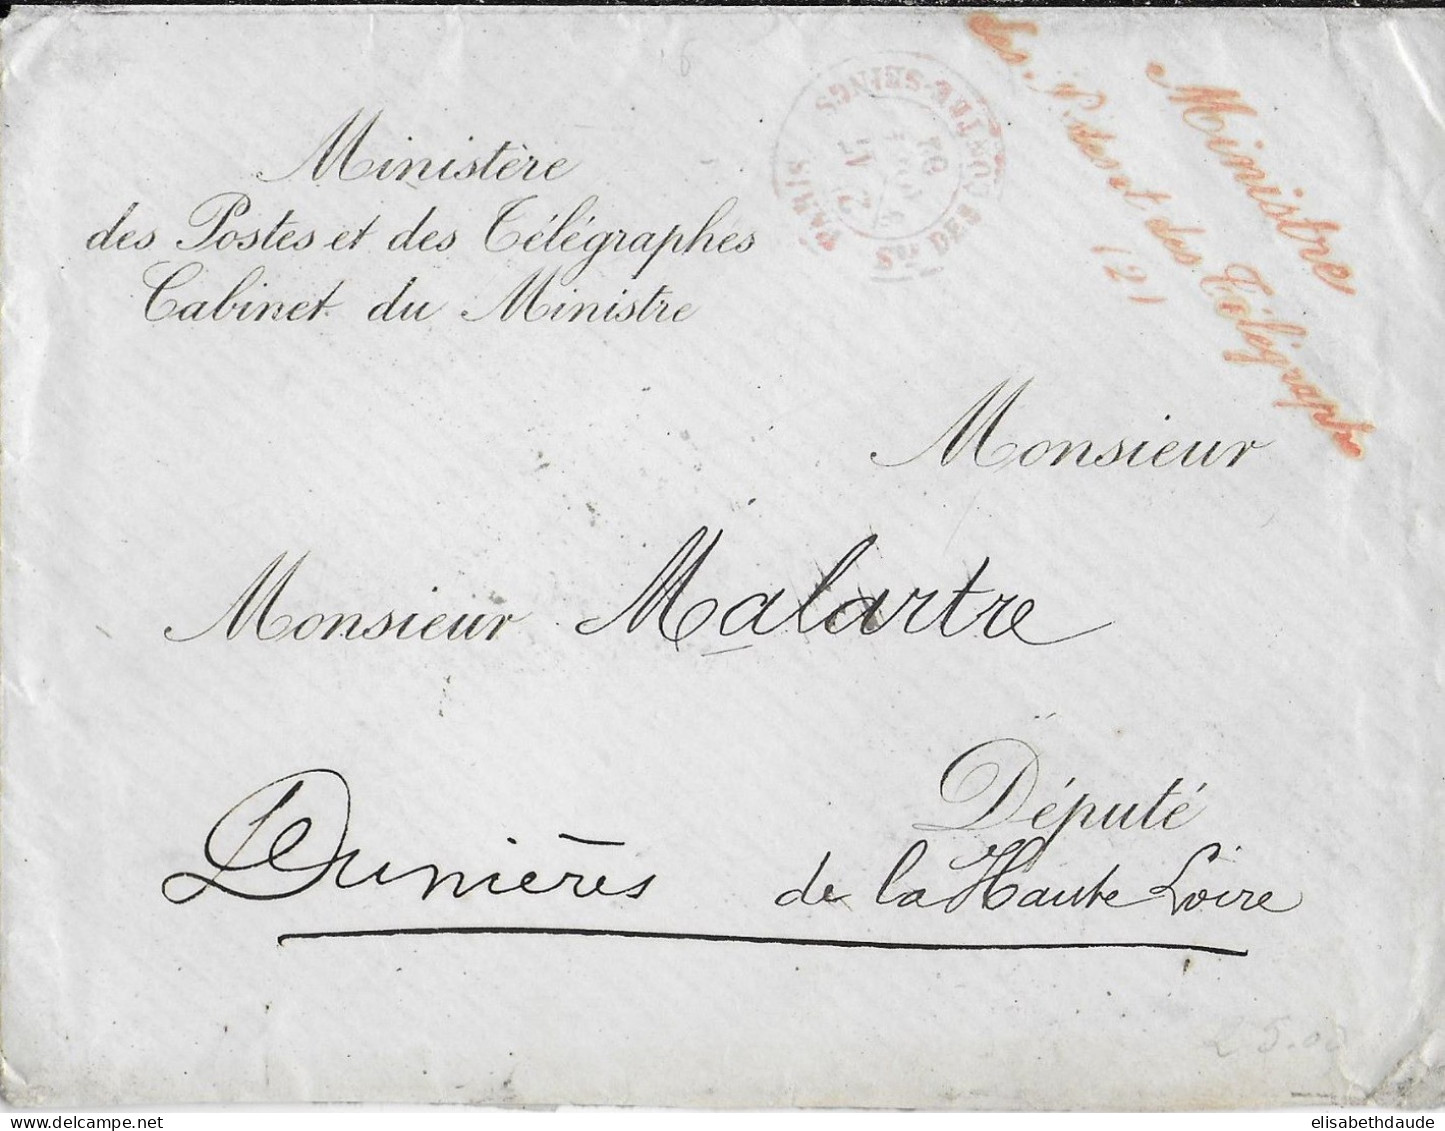 Ministère
des Postes et des Télégraphes
Cabinet du Ministre
PARIS
Sce DES CONTRE-SEINGS
Ministre
des P. et des Télégraphe
(2)
Monsieur
Monsieur Malartre
Député
Dunières de la Haute Loire
25.00
elisabethdaude